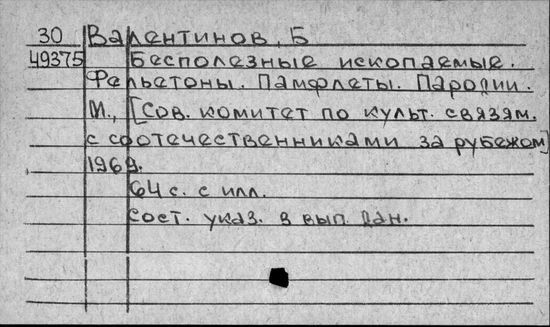 30 Валентинов, Б
49375 Бесполезные ископаемые.
Фельетоны. Памфлеты. Пародии.
М., [Сов. комитет по культ. связям.
с соотечественниками за рубежом]
1969.
64 с. с илл.
Сост. указ. в вып. дан.